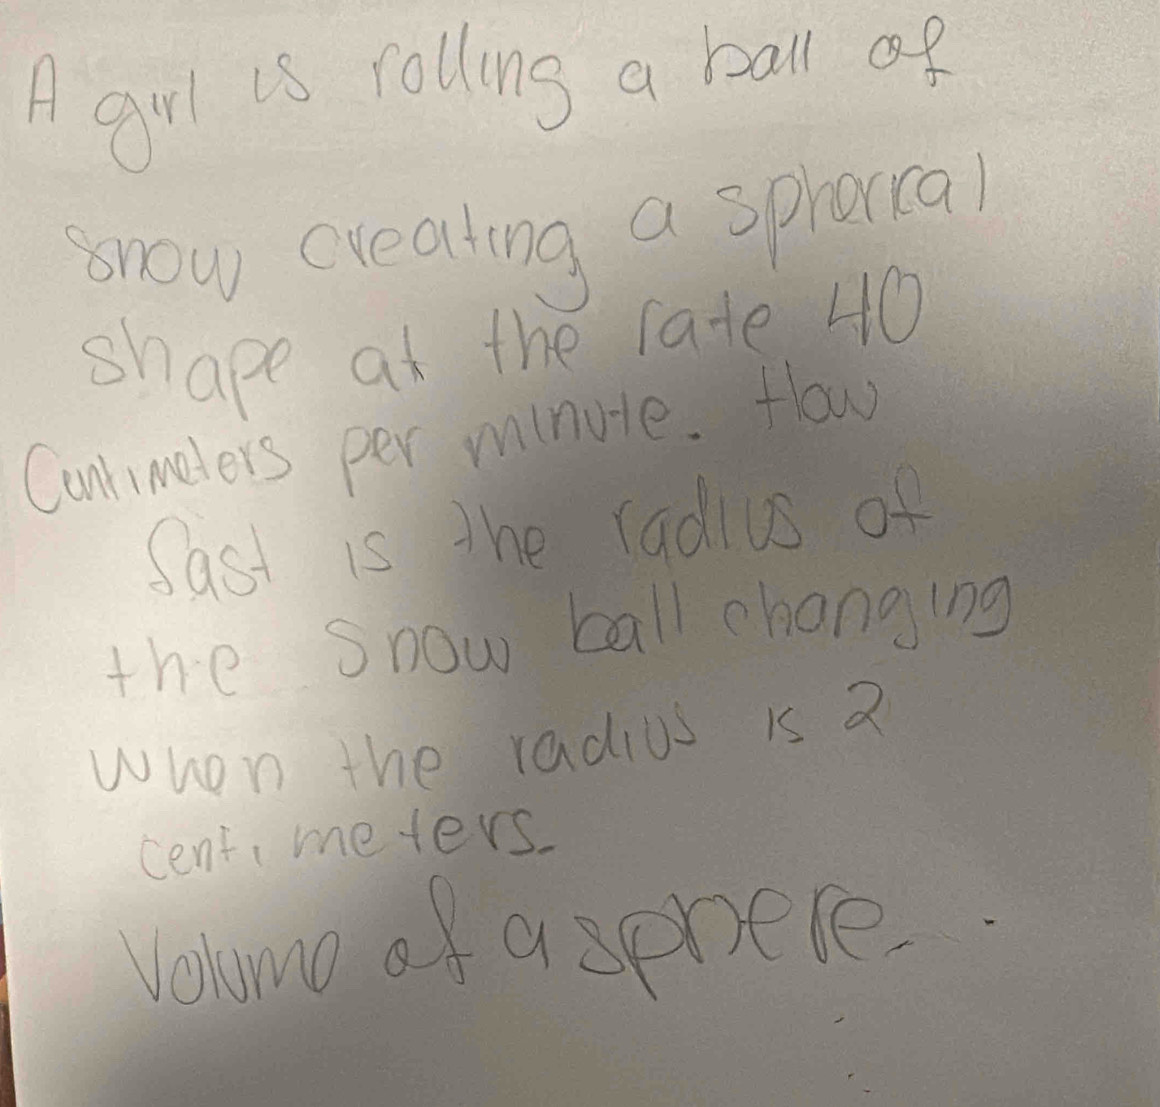 A girl is rolling a ball of
snow creating a spherical
shape at the rate 40
Centimeters per minute. How
fast is the radius of
the snow ball changing
when the radius is 2
centimeters.
Volume of a sphere.